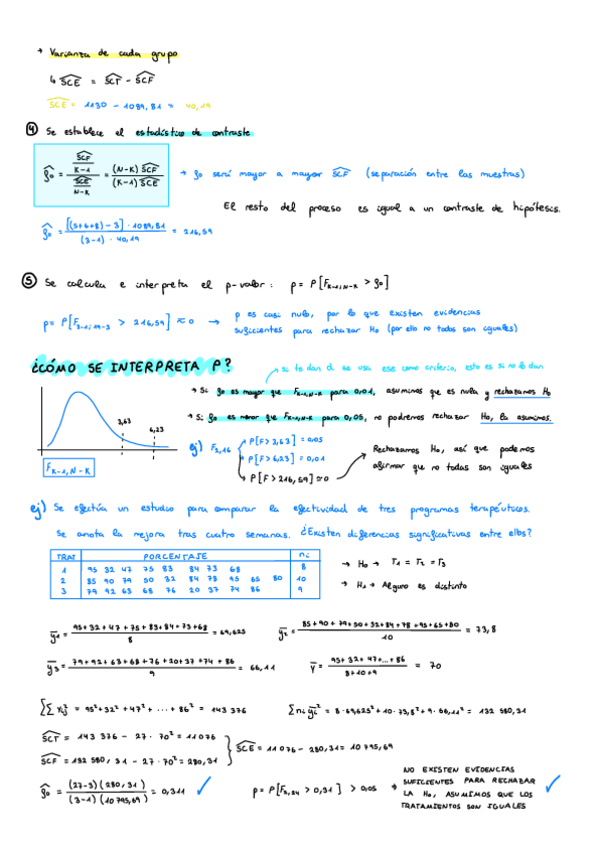 → Varianza de cada grupo
↳ SCE = SCT - SCF
SCE = 1130 - 1089,81 = 40,19
④ Se establece el estadístico de contraste
ρ̂o = (SCF / K-1) / (SCE / N-K) = (N-K) SCF / (K-1) SCE → ρo será mayor a mayor SCF (separación entre las muestras)
El resto del proceso es igual a un contraste de hipótesis.
ρ̂o = [(5+6+8) - 3] · 1089,81 / (3-1) · 40,19 = 216,59
⑤ Se calcula e interpreta el p-valor: p = P[F K-1,N-K > ρo]
p = P[F 3-1,19-3 > 216,59] ≈ 0 → p es casi nulo, por lo que existen evidencias
suficientes para rechazar Ho (por ello no todos son iguales)
¿CÓMO SE INTERPRETA P?
si te dan α se usa ese como criterio, esto es si no lo dan
→ Si ρo es mayor que F K-1,N-K para 0,01, asumimos que es nula y rechazamos Ho
→ Si ρo es menor que F K-1,N-K para 0,05, no podremos rechazar Ho, la asumimos.
3,63
6,23
F K-1, N-K
ej) F 2,16
P[F > 3,63] = 0,05
P[F > 6,23] = 0,01
P[F > 216,59] ≈ 0
Rechazamos Ho, así que podemos
afirmar que no todas son iguales
ej) Se efectúa un estudio para comparar la efectividad de tres programas terapéuticos.
Se anota la mejora tras cuatro semanas. ¿Existen diferencias significativas entre ellos?
TRAT PORCENTAJE ni
1 95 32 47 75 83 84 73 68 8
2 85 90 79 50 32 84 78 95 65 80 10
3 79 92 63 68 76 20 37 74 86 9
→ Ho → T1 = T2 = T3
→ H1 → Alguno es distinto
y̅1 = 95+32+47+75+83+84+73+68 / 8 = 69,625
y̅2 = 85+90+79+50+32+84+78+95+65+80 / 10 = 73,8
y̅3 = 79+92+63+68+76+20+37+74+86 / 9 = 66,11
y̅ = 95+32+47+...+86 / 8+10+9 = 70
∑∑ xij² = 95²+32²+47²+ ··· +86² = 143 376
∑ni y̅i² = 8·69,625²+10·73,8²+9·66,11² = 132 580,31
SCT = 143 376 - 27·70² = 11076
SCF = 132 580,31 - 27·70² = 280,31
SCE = 11 076 - 280,31 = 10 795,69
ρ̂o = (27-3)(280,31) / (3-1)(10795,69) = 0,311
p = P[F 2,24 > 0,31] > 0,05 →
NO EXISTEN EVIDENCIAS
SUFICIENTES PARA RECHAZAR
LA Ho, ASUMIMOS QUE LOS
TRATAMIENTOS SON IGUALES